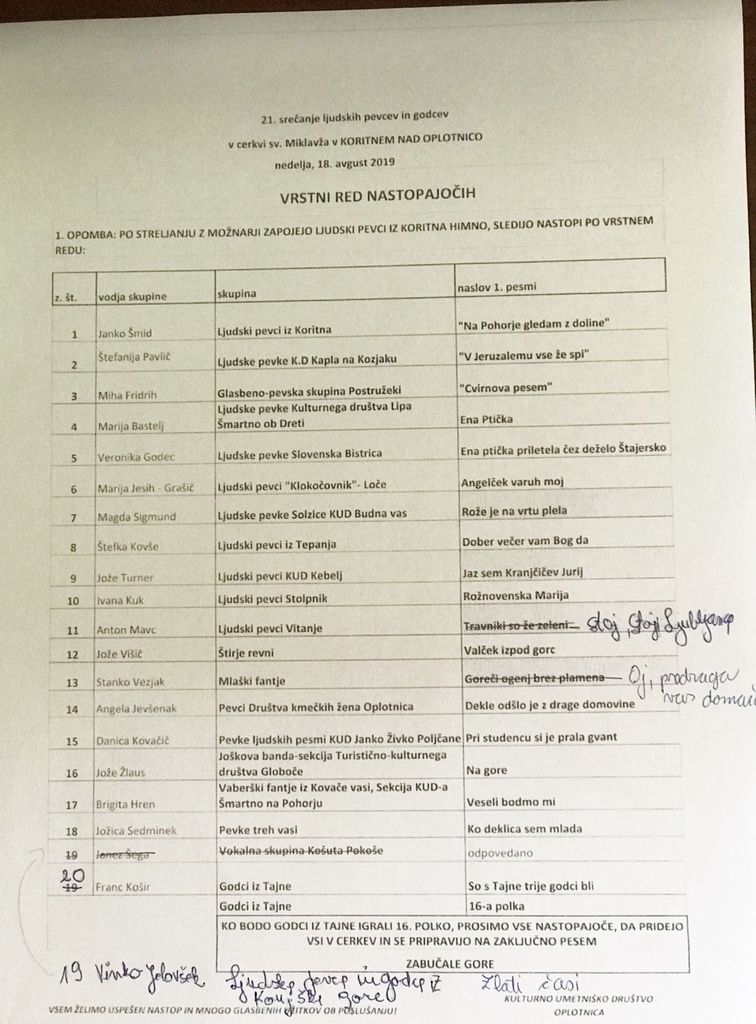 21. srečanje ljudskih pevcev in godcev
v cerkvi sv. Miklavža v KORITNEM NAD OPLOTNICO
nedelja, 18. avgust 2019
VRSTNI RED NASTOPAJOČIH
1. OPOMBA: PO STRELJANJU Z MOŽNARJI ZAPOJEJO LJUDSKI PEVCI IZ KORITNA HIMNO, SLEDIJO NASTOPI PO VRSTNEM
REDU:
z. št. vodja skupine skupina naslov 1. pesmi
1 Janko Šmid Ljudski pevci iz Koritna "Na Pohorje gledam z doline"
2 Štefanija Pavlič Ljudske pevke K.D Kapla na Kozjaku "V Jeruzalemu vse že spi"
3 Miha Fridrih Glasbeno-pevska skupina Postružeki "Cvirnova pesem"
4 Marija Bastelj Ljudske pevke Kulturnega društva Lipa
Šmartno ob Dreti Ena Ptička
5 Veronika Godec Ljudske pevke Slovenska Bistrica Ena ptička priletela čez deželo Štajersko
6 Marija Jesih - Grašič Ljudski pevci "Klokočovnik"- Loče Angelček varuh moj
7 Magda Sigmund Ljudske pevke Solzice KUD Budna vas Rože je na vrtu plela
8 Štefka Kovše Ljudski pevci iz Tepanja Dober večer vam Bog da
9 Jože Turner Ljudski pevci KUD Kebelj Jaz sem Kranjčičev Jurij
10 Ivana Kuk Ljudski pevci Stolpnik Rožnovenska Marija
11 Anton Mavc Ljudski pevci Vitanje Travniki so že zeleni stoj, stoji Ljubljanca
12 Jože Višič Štirje revni Valček izpod gorc
13 Stanko Vezjak Mlaški fantje Goreči ogenj brez plamena Oj, predraga
vas domača
14 Angela Jevšenak Pevci Društva kmečkih žena Oplotnica Dekle odšlo je z drage domovine
15 Danica Kovačič Pevke ljudskih pesmi KUD Janko Živko Poljčane Pri studencu si je prala gvant
16 Jože Žlaus Joškova banda-sekcija Turistično-kulturnega
društva Globoče Na gore
17 Brigita Hren Vaberški fantje iz Kovače vasi, Sekcija KUD-a
Šmartno na Pohorju Veseli bodmo mi
18 Jožica Sedminek Pevke treh vasi Ko deklica sem mlada
19 Janez Šega Vokalna skupina Košuta Pokoše odpovedano
20
19 Franc Košir Godci iz Tajne So s Tajne trije godci bli
Godci iz Tajne 16-a polka
KO BODO GODCI IZ TAJNE IGRALI 16. POLKO, PROSIMO VSE NASTOPAJOČE, DA PRIDEJO
VSI V CERKEV IN SE PRIPRAVIJO NA ZAKLJUČNO PESEM
ZABUČALE GORE
19 Vinko Jelovšek Ljudski pevci in godci iz Zlati časi
Konjiške gore
KULTURNO UMETNIŠKO DRUŠTVO
OPLOTNICA
VSEM ŽELIMO USPEŠEN NASTOP IN MNOGO GLASBENIH UŽITKOV OB POSLUŠANJU!